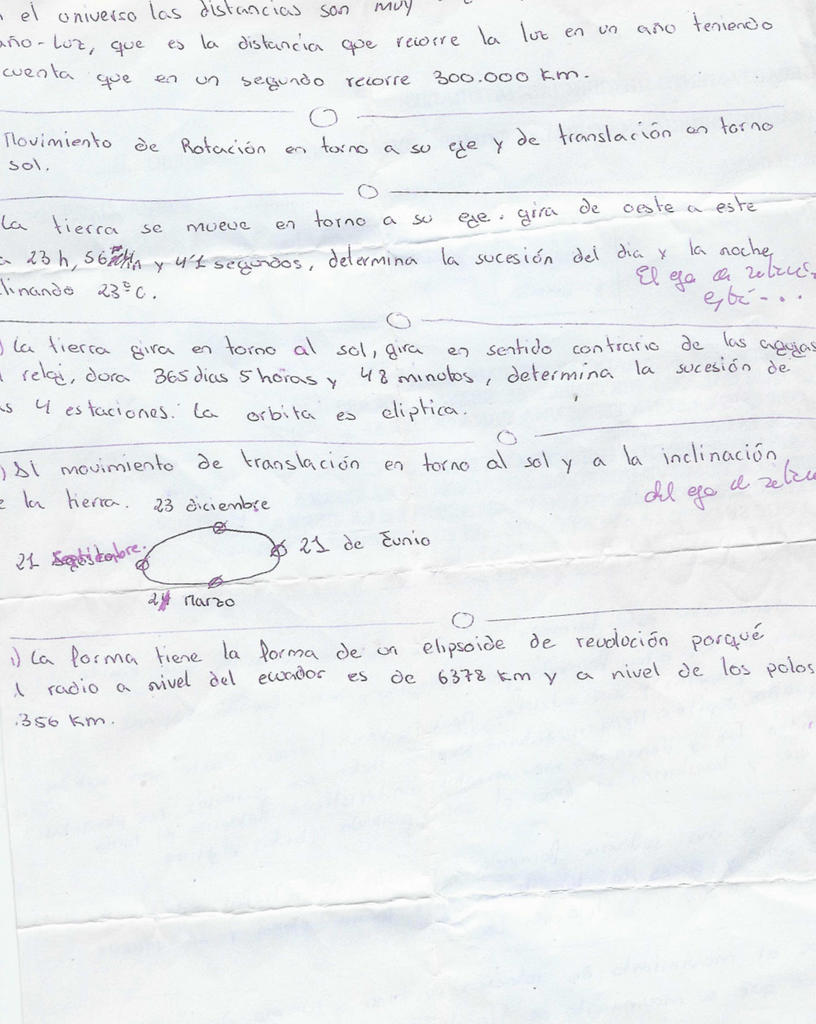 el universo las distancias son muy
año-Luz, que es la distancia que recorre la luz en un año teniendo
cuenta que en un segundo recorre 300.000 Km.
Movimiento de Rotación en torno a su eje y de translación en torno
sol.
La tierra se mueve en torno a su eje. gira de oeste a este
23 h, 56 y 4'1 segundos, determina la sucesión del dia y la noche
linando 23ºC.
El eje de
está - ...
La tierra gira en torno al sol, gira en sentido contrario de las agujas
reloj, dura 365 dias 5 horas y 48 minutos, determina la sucesión de
s 4 estaciones. La orbita es eliptica.
) Al movimiento de translación en torno al sol y a la inclinación
e la tierra.
del eje de
23 diciembre
21 Septiembre.
21 de Junio
21 Marzo
i) La forma tiene la forma de un elipsoide de revolución porqué
l radio a nivel del ecuador es de 6378 Km y a nivel de los polos
.356 Km.